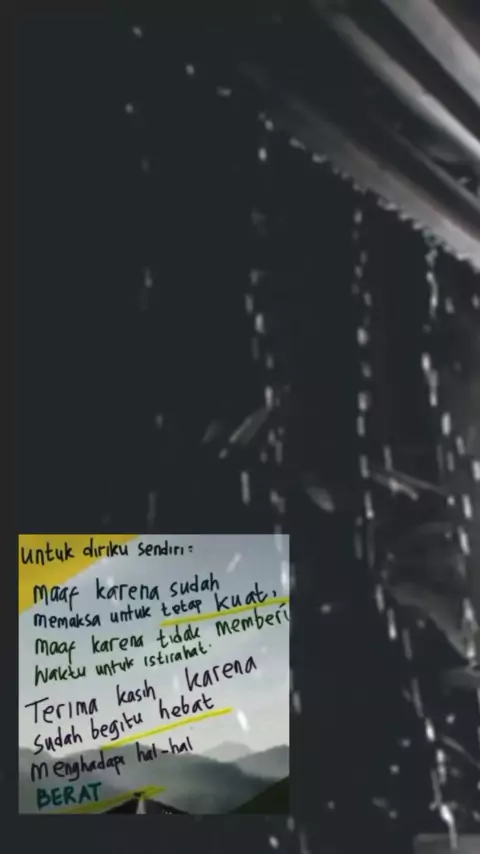 untuk diriku sendiri:
maaf karena sudah
memaksa untuk tetap kuat,
maaf karena tidak memberi
waktu untuk istirahat.
Terima kasih karena
sudah begitu hebat
menghadapi hal-hal
BERAT